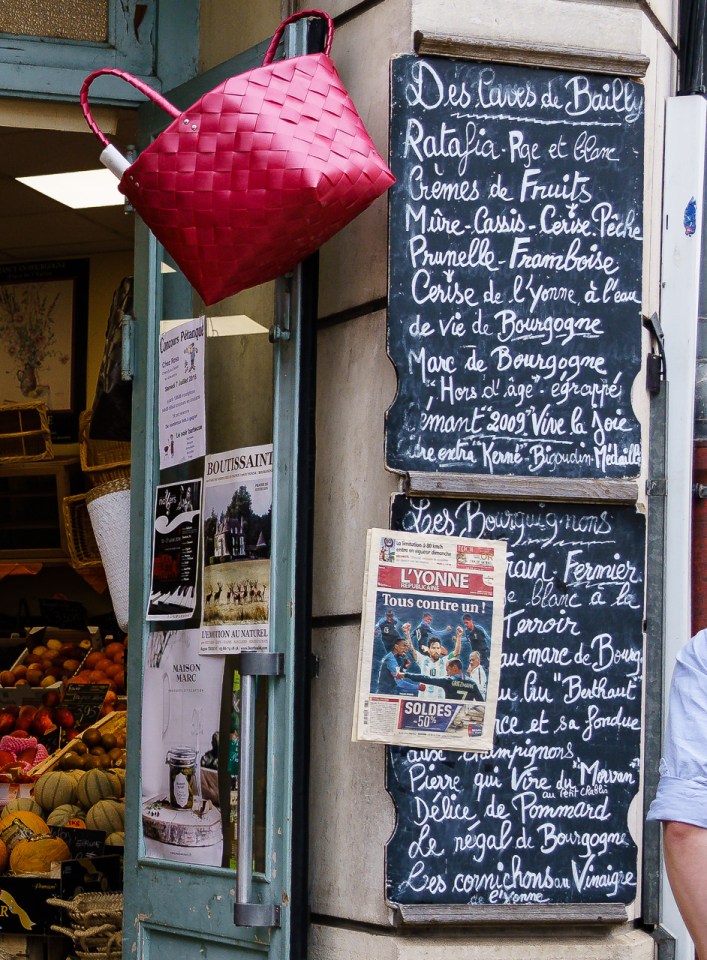 Des Caves de Bailly
Ratafia - Rge et blanc
Crèmes de Fruits
Mûre - Cassis - Cerise. Pêche
Prunelle - Framboise
Cerise de l'Yonne, à l'eau
de vie de Bourgogne
Marc de Bourgogne
"Hors d'âge" égrappé
émant "2009" Vive la Joie
ère entra "Kerné" Bigoudin Médaille
Les Bourguignons
rain Fermier
blanc à la
Terroir
au marc de Bourg
u, lu "Berthaut
nce et sa fondue
aux champignons
Pierre qui Vire du "Morvan"
au Petit Chablis
Délice de Pommard
Le négal de Bourgogne
Les cornichons au Vinaigre
de l'Yonne
La limitation à 80 km/h
L'YONNE
RÉPUBLICAINE
Tous contre un !
SOLDES
-50%
Concours Pétanque
Samedi 7 juillet
BOUTISSAINT
L'ÉMOTION AU NATUREL
MAISON
MARC